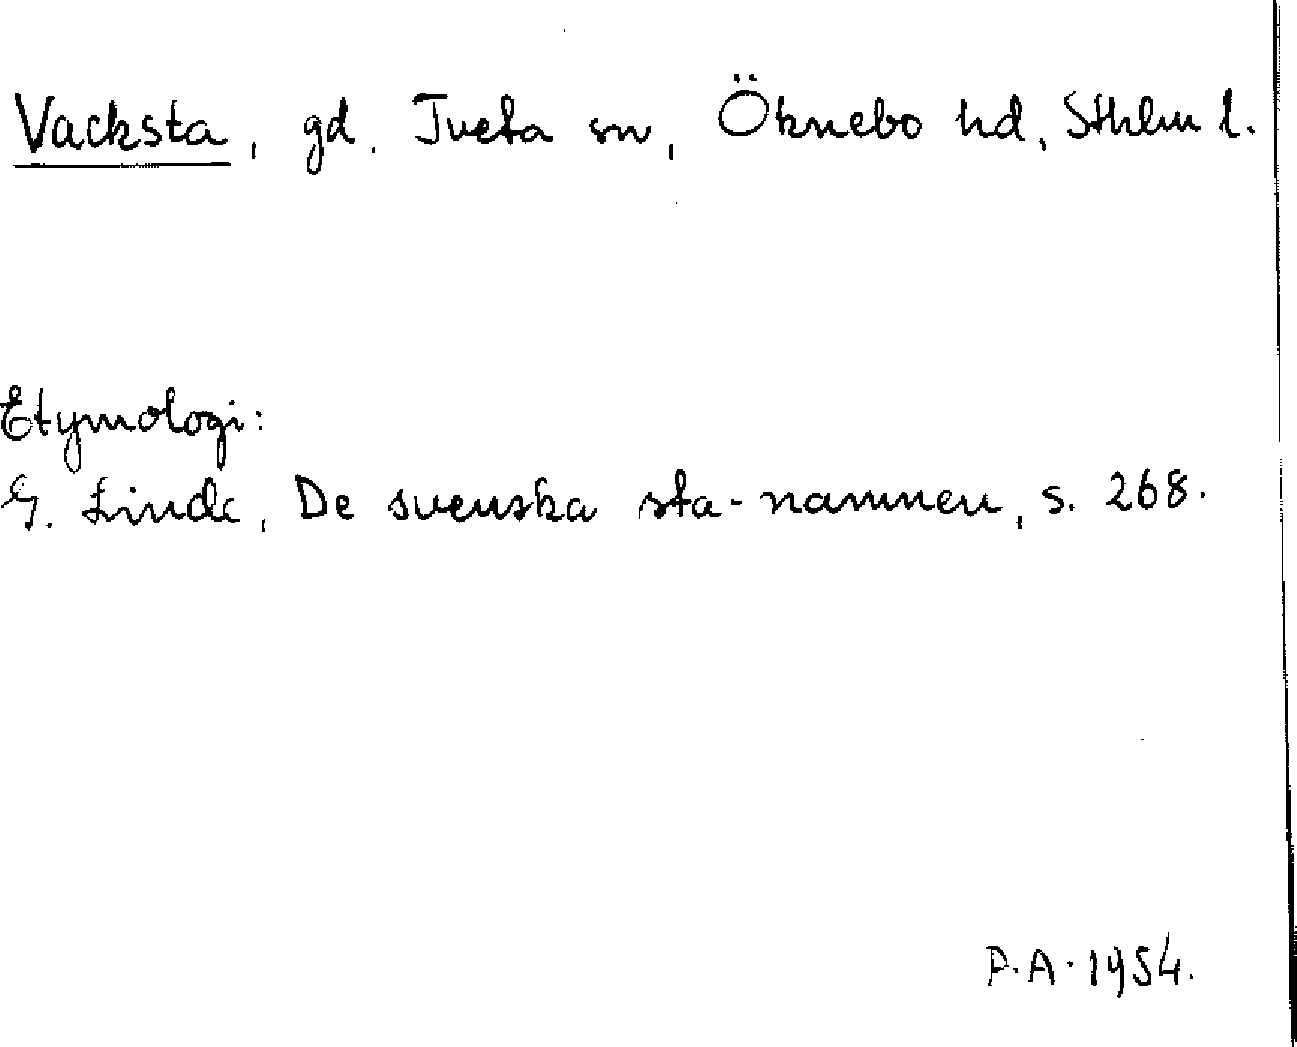 Vacksta, gd, Tveta sn, Öknebo hd, Sthlm l.
Etymologi:
G. Linde, De svenska sta-namnen, s. 268.
P.A. 1954.